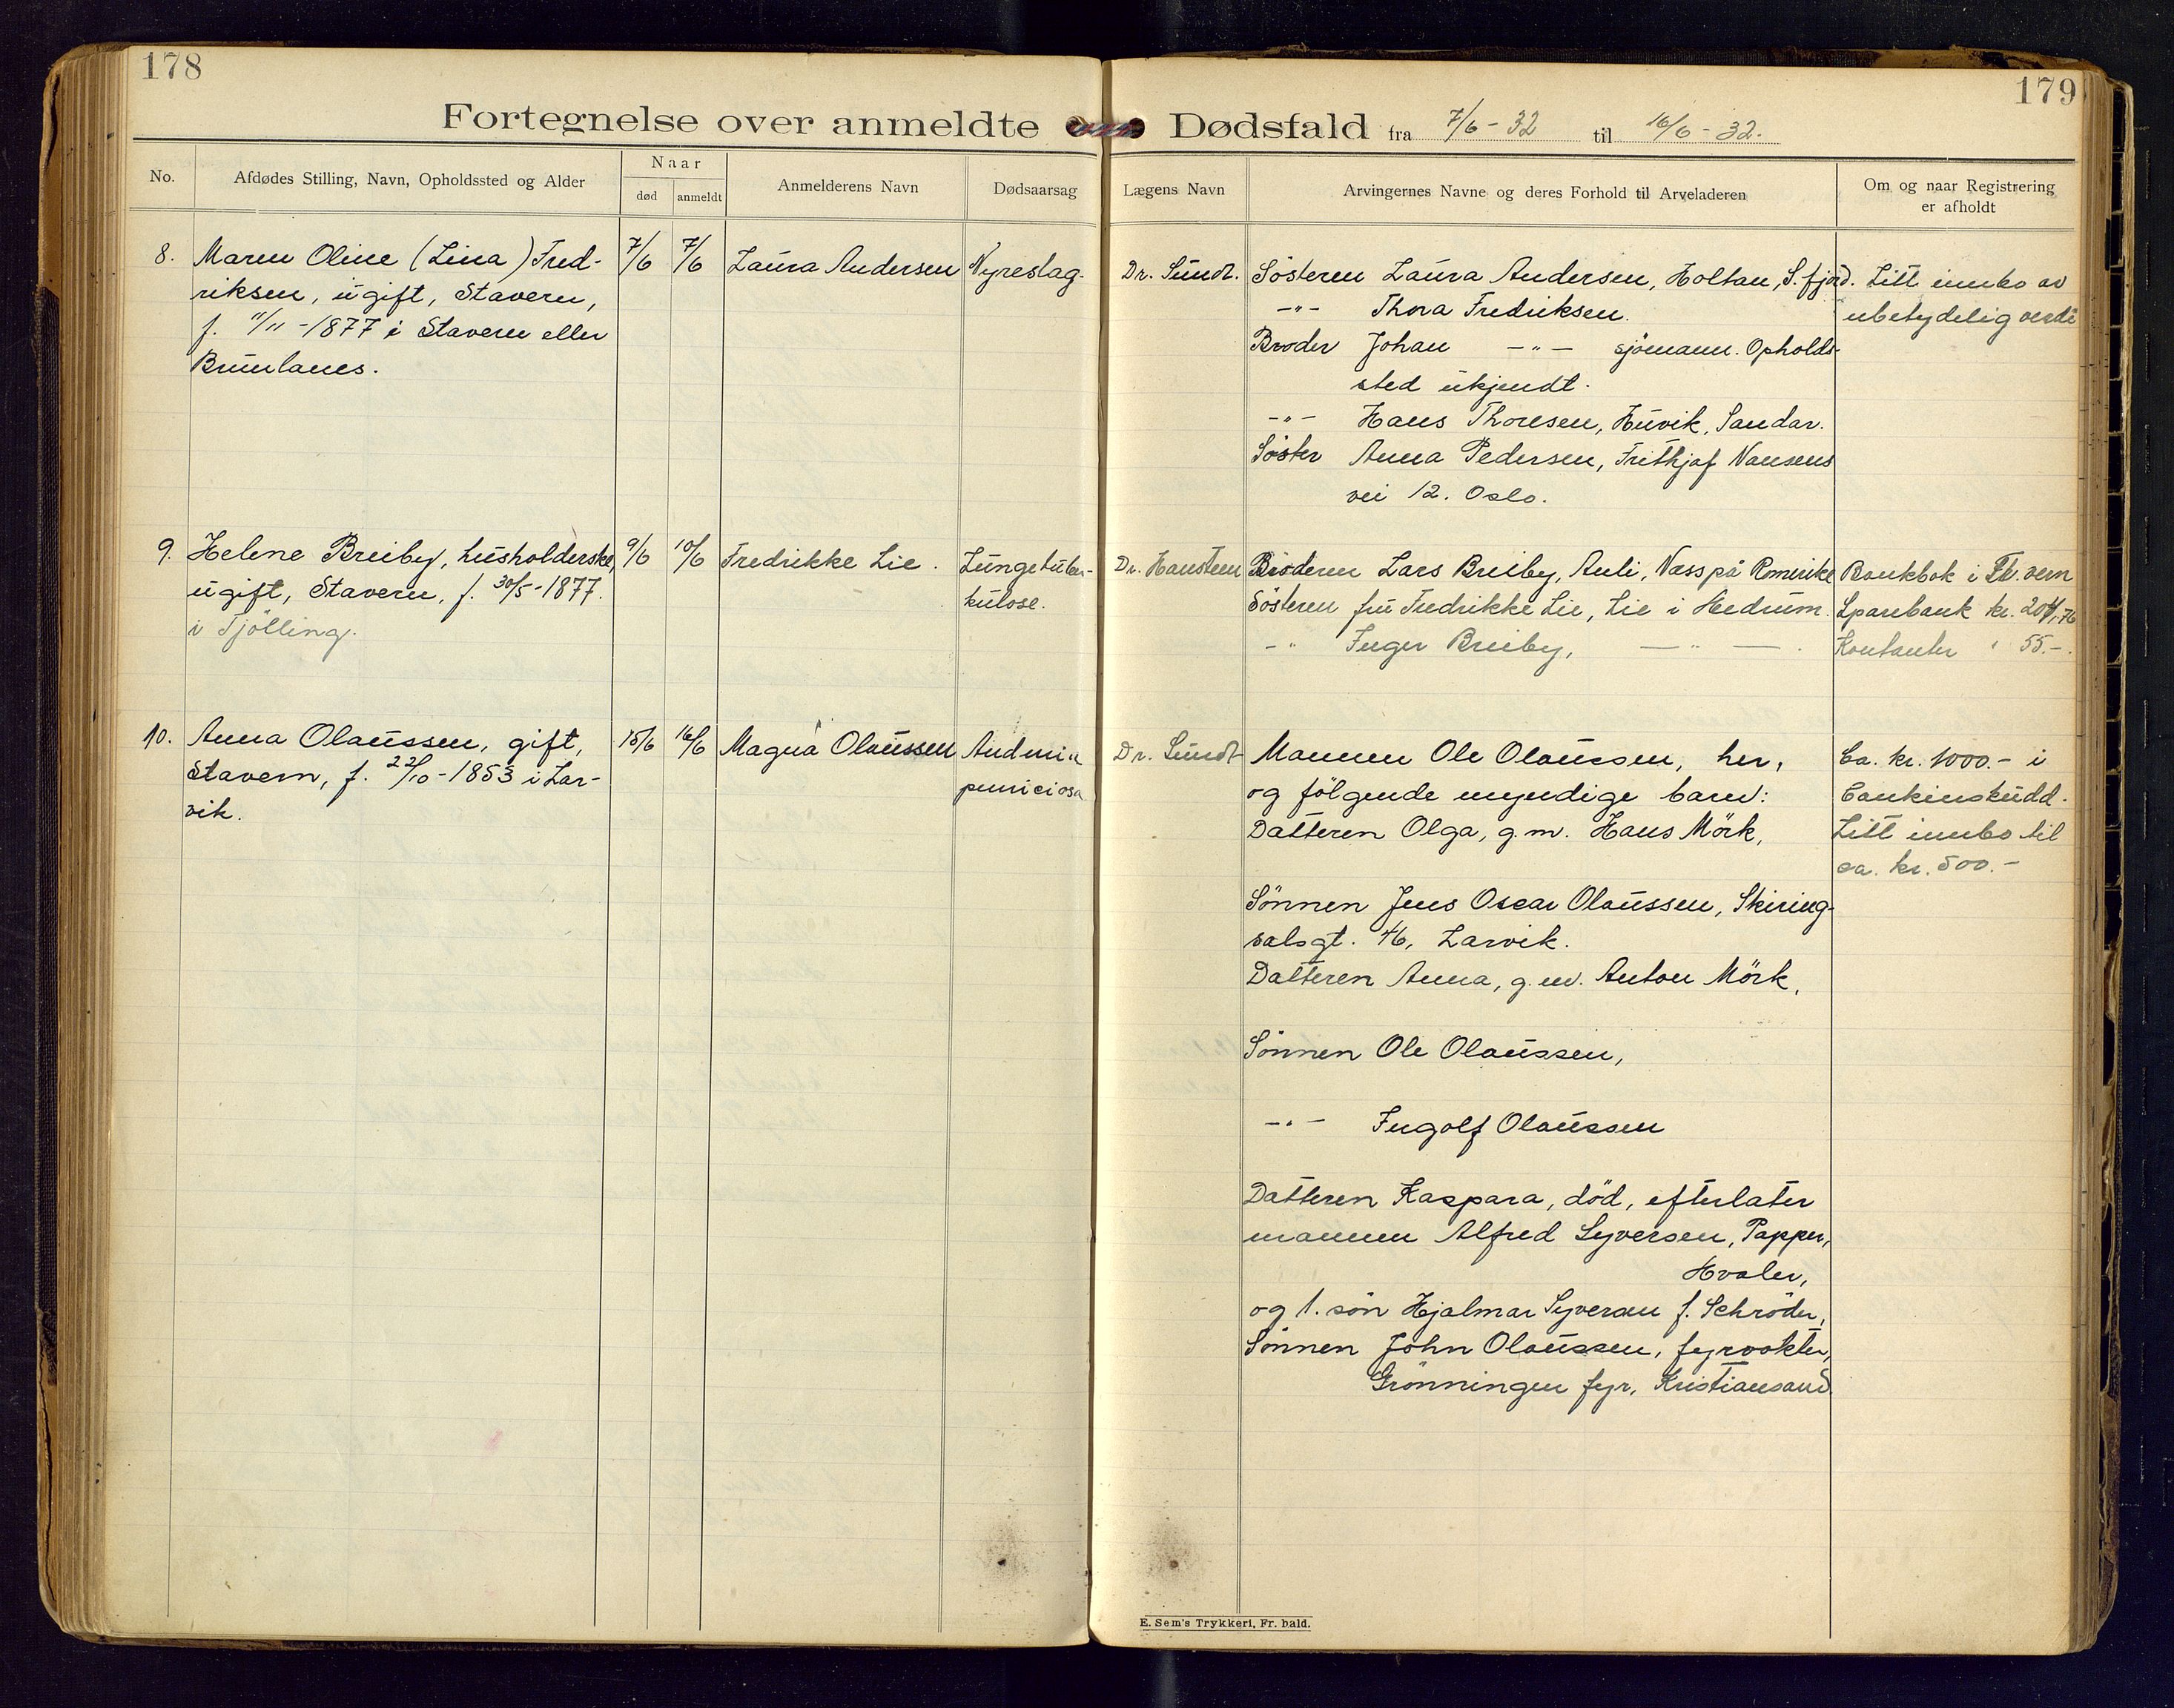 178
179
Fortegnelse over anmeldte Dødsfald fra 7/6 - 32 til 16/6 - 32.
No.
Afdødes Stilling, Navn, Opholdssted og Alder
Naar
død
anmeldt
Anmelderens Navn
Dødsaarsag
Lægens Navn
Arvingernes Navne og deres Forhold til Arveladeren
Om og naar Registrering
er afholdt
8. Maren Oline (Lina) Fred-
riksen, ugift, Stavern,
f. 11/11 - 1877 i Stavern eller
Brunlanes.
7/6
7/6
Laura Andersen
Nyreslag.
Dr. Sundt.
Søsteren Laura Andersen, Holtan, S. fjord.
-"- Thora Fredriksen.
Broder Johan -"- sjömann. Opholds-
sted ukjendt.
-"- Hans Thoresen, Huvik, Sandar.
Søster Anna Pedersen, Frithjof Nansens
vei 12. Oslo.
Litt innbo av
ubetydelig verdi
9. Helene Breiby, husholderske,
ugift, Stavern, f. 30/5 - 1877.
i Tjölling.
9/6
10/6
Fredrikke Lie.
Lungetuber-
kulose.
Dr. Hansteen
Broderen Lars Breiby, Auli, Næss på Romerike
Søsteren fru Fredrikke Lie, Lie i Hedrum.
-"- Inger Breiby, -"-
Bankbok i Fr. vern
Sparebank kr. 204,76
Kontanter " 55.-.
10. Anna Olaussen, gift,
Stavern, f. 22/10 - 1853 i Lar-
vik.
15/6
16/6
Magna Olaussen
perniciosa
Dr. Sundt
Mannen Ole Olaussen, her,
og følgende myndige barn:
Datteren Olga, g.m. Hans Mörk,
Sönnen Jens Oscar Olaussen, Skiring-
salsgt. 46, Larvik.
Datteren Anna, g.m. Anton Mörk,
Sönnen Ole Olaussen,
-"- Ingolf Olaussen
Datteren Kaspara, död, efterlater
mannen Alfred Syversen, Papper,
Hvaler,
og 1. sön Hjalmar Syversen f. Schröder,
Sönnen John Olaussen, fyrvokter,
Grönningen fyr, Kristiansand
Ca. kr. 1000.- i
bankinskudd.
Litt innbo til
ca. kr. 500.-
E. Sem's Trykkeri, Fr. hald.